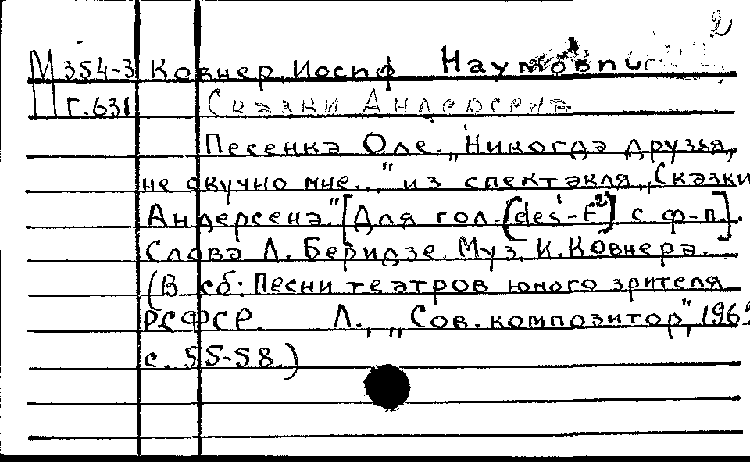 2
М354-3 Ковнер, Иосиф Наумович
П г.631 Сказки Андерсена
Песенка Оле. „Никогда друзья,
не скучно мне..." из спектакля „Сказки
Андерсена". [Для гол. (des¹-f²) с ф-п.].
Слова Л. Беридзе. Муз. И. Ковнера.
(В сб: Песни театров юного зрителя
РСФСР. Л., „Сов. композитор",
с. 55-58.)